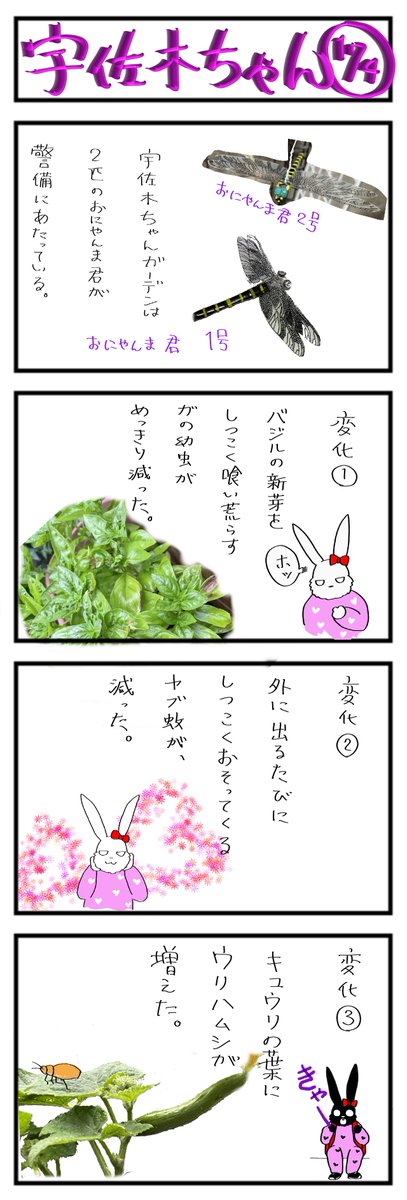 宇佐木ちゃん174
宇佐木ちゃんガーデンは
2匹のおにやんま君が
警備にあたっている。
おにやんま君 2号
おにやんま 君 1号
変化①
バジルの新芽を
しつこく喰い荒らす
ガの幼虫が
めっきり減った。
ホッ
変化②
外に出るたびに
しつこくおそってくる
ヤブ蚊が、
減った、。
変化③
キュウリの葉に
ウリハムシが
増えた。
きゃー